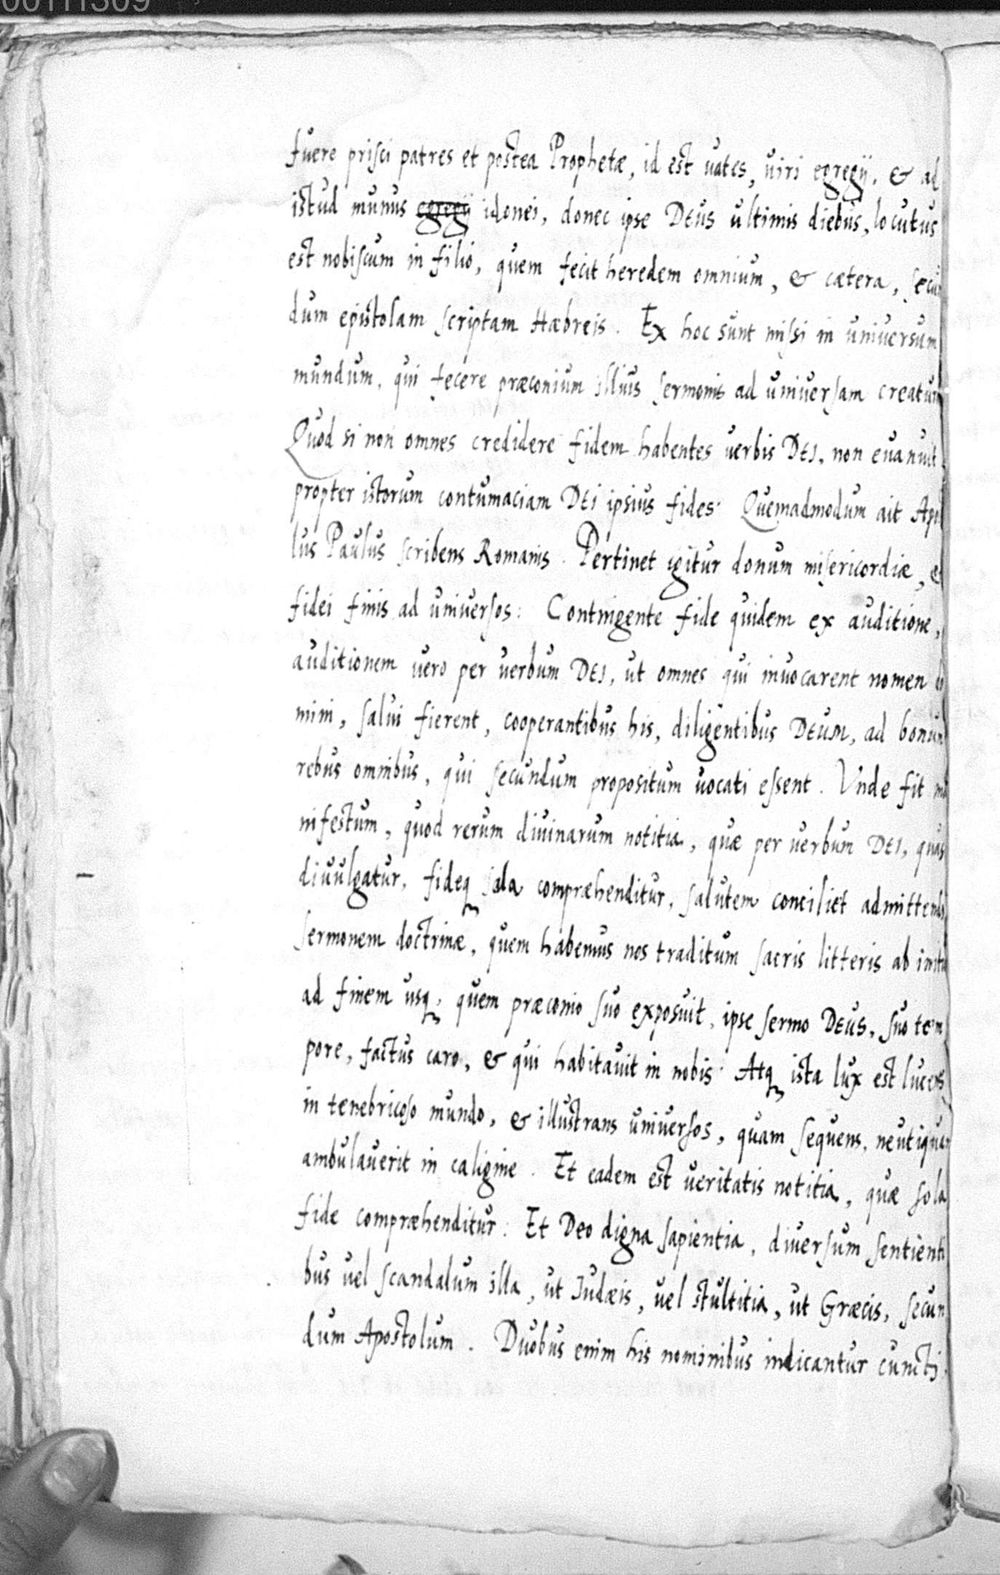 00111309
fuere prisci patres et postea Prophetæ, id est uates, uiri egregij, & ad
istud munus egregij idonei, donec ipse DEUS ultimis diebus, locutus
est nobiscum in filio, quem fecit heredem omnium, & cætera, secun
dum epistolam scriptam Hæbreis. Ex hoc sunt missi in uniuersum
mundum, qui fecere præconium illius sermonis ad uniuersam creatur
Quod si non omnes credidere fidem habentes uerbis DEI, non euanuit
propter istorum contumaciam DEI ipsius fides. Quemadmodum ait Apo
lus Paulus scribens Romanis. Pertinet igitur donum misericordiæ, et
fidei finis ad uniuersos: Contingente fide quidem ex auditione,
auditionem uero per uerbum DEI, ut omnes qui inuocarent nomen do
mini, salui fierent, cooperantibus his, diligentibus DEUM, ad bonum
rebus omnibus, qui secundum propositum uocati essent. Vnde fit ma
nifestum, quod rerum diuinarum notitia, quæ per uerbum DEI, quasi
diuulgatur, fideq sola compræhenditur, salutem conciliet admittendo
sermonem doctrinæ, quem habemus nos traditum sacris litteris ab initio
ad finem usq, quem præconio suo exposuit, ipse sermo DEUS, suo tem
pore, factus caro, & qui habitauit in nobis. Atq ista lux est lucens
in tenebricoso mundo, & illustrans uniuersos, quam sequens, neutiquam
ambulauerit in caligine. Et eadem est ueritatis notitia, quæ sola
fide compræhenditur: Et Deo digna sapientia, diuersum sentienti
bus uel scandalum illa, ut Judæis, uel stultitia, ut Græcis, secun
dum Apostolum. Duobus enim his nominibus indicantur cuncti